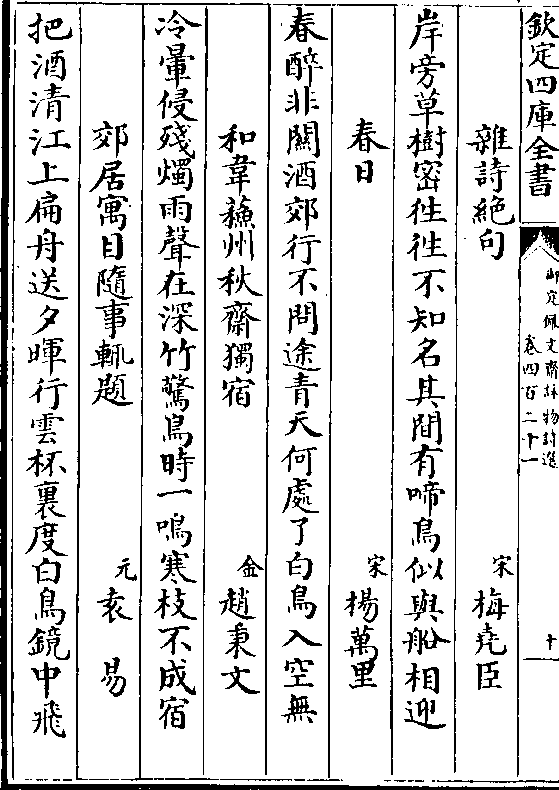 欽定四庫全書
御定佩文齋詠物詩選
卷四百二十一
十
雜詩絶句
宋
梅堯臣
岸旁草樹密徃徃不知名其間有啼鳥似與船相迎
春日
宋
楊萬里
春醉非關酒郊行不問途青天何處了白鳥入空無
和韋蘇州秋齋獨宿
金
趙秉文
冷暈侵殘燭雨聲在深竹驚鳥時一鳴寒枝不成宿
郊居寓目隨事輒題
元
袁易
把酒清江上扁舟送夕暉行雲杯裏度白鳥鏡中飛